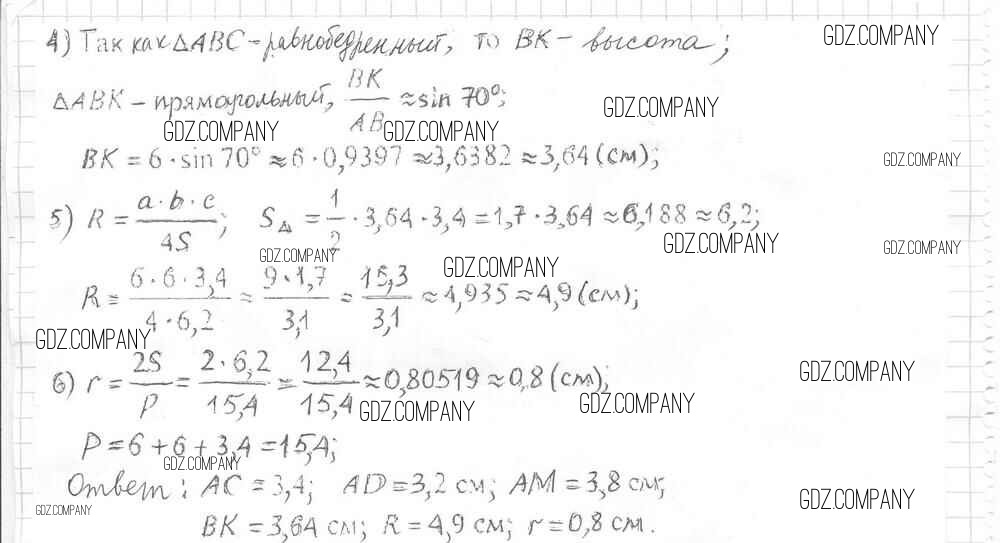 4) Так как ΔABC – равнобедренный, то BK – высота; GDZ.COMPANY
ΔABK – прямоугольный, BK/AB ≈ sin 70°; GDZ.COMPANY
GDZ.COMPANY GDZ.COMPANY
BK = 6 · sin 70° ≈ 6 · 0,9397 ≈ 3,6382 ≈ 3,64 (см); GDZ.COMPANY
5) R = a · b · c / 4S; S△ = 1/2 · 3,64 · 3,4 = 1,7 · 3,64 ≈ 6,188 ≈ 6,2;
GDZ.COMPANY GDZ.COMPANY
GDZ.COMPANY GDZ.COMPANY
R = 6 · 6 · 3,4 / 4 · 6,2 = 9 · 1,7 / 3,1 = 15,3 / 3,1 ≈ 4,935 ≈ 4,9 (см);
GDZ.COMPANY
6) r = 2S / P = 2 · 6,2 / 15,4 = 12,4 / 15,4 ≈ 0,80519 ≈ 0,8 (см); GDZ.COMPANY
GDZ.COMPANY GDZ.COMPANY
P = 6 + 6 + 3,4 = 15,4;
GDZ.COMPANY
Ответ: AC = 3,4; AD = 3,2 см; AM = 3,8 см; GDZ.COMPANY
GDZ.COMPANY
BK = 3,64 см; R = 4,9 см; r = 0,8 см.